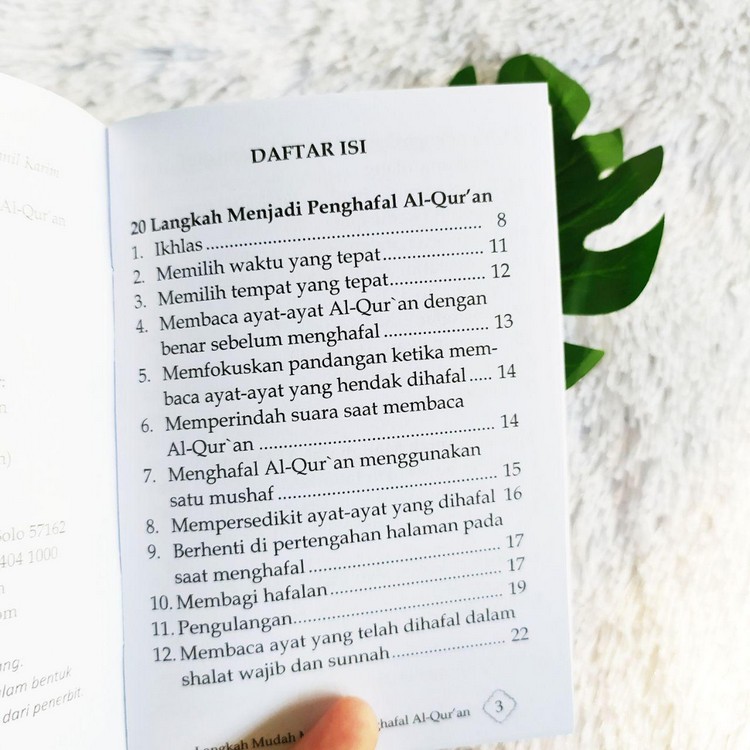 amil Karim
Al-Qur'an
Solo 57162
404 1000
om
ng.
lam bentuk
dari penerbit.
DAFTAR ISI
20 Langkah Menjadi Penghafal Al-Qur'an
1. Ikhlas ........................................................ 8
2. Memilih waktu yang tepat ................... 11
3. Memilih tempat yang tepat .................. 12
4. Membaca ayat-ayat Al-Qur`an dengan
benar sebelum menghafal ................... 13
5. Memfokuskan pandangan ketika mem-
baca ayat-ayat yang hendak dihafal ..... 14
6. Memperindah suara saat membaca
Al-Qur`an ............................................... 14
7. Menghafal Al-Qur`an menggunakan
satu mushaf ............................................ 15
8. Mempersedikit ayat-ayat yang dihafal 16
9. Berhenti di pertengahan halaman pada
saat menghafal ...................................... 17
10. Membagi hafalan .................................. 17
11. Pengulangan .......................................... 19
12. Membaca ayat yang telah dihafal dalam
shalat wajib dan sunnah ....................... 22
Langkah Mudah M hafal Al-Qur'an 3